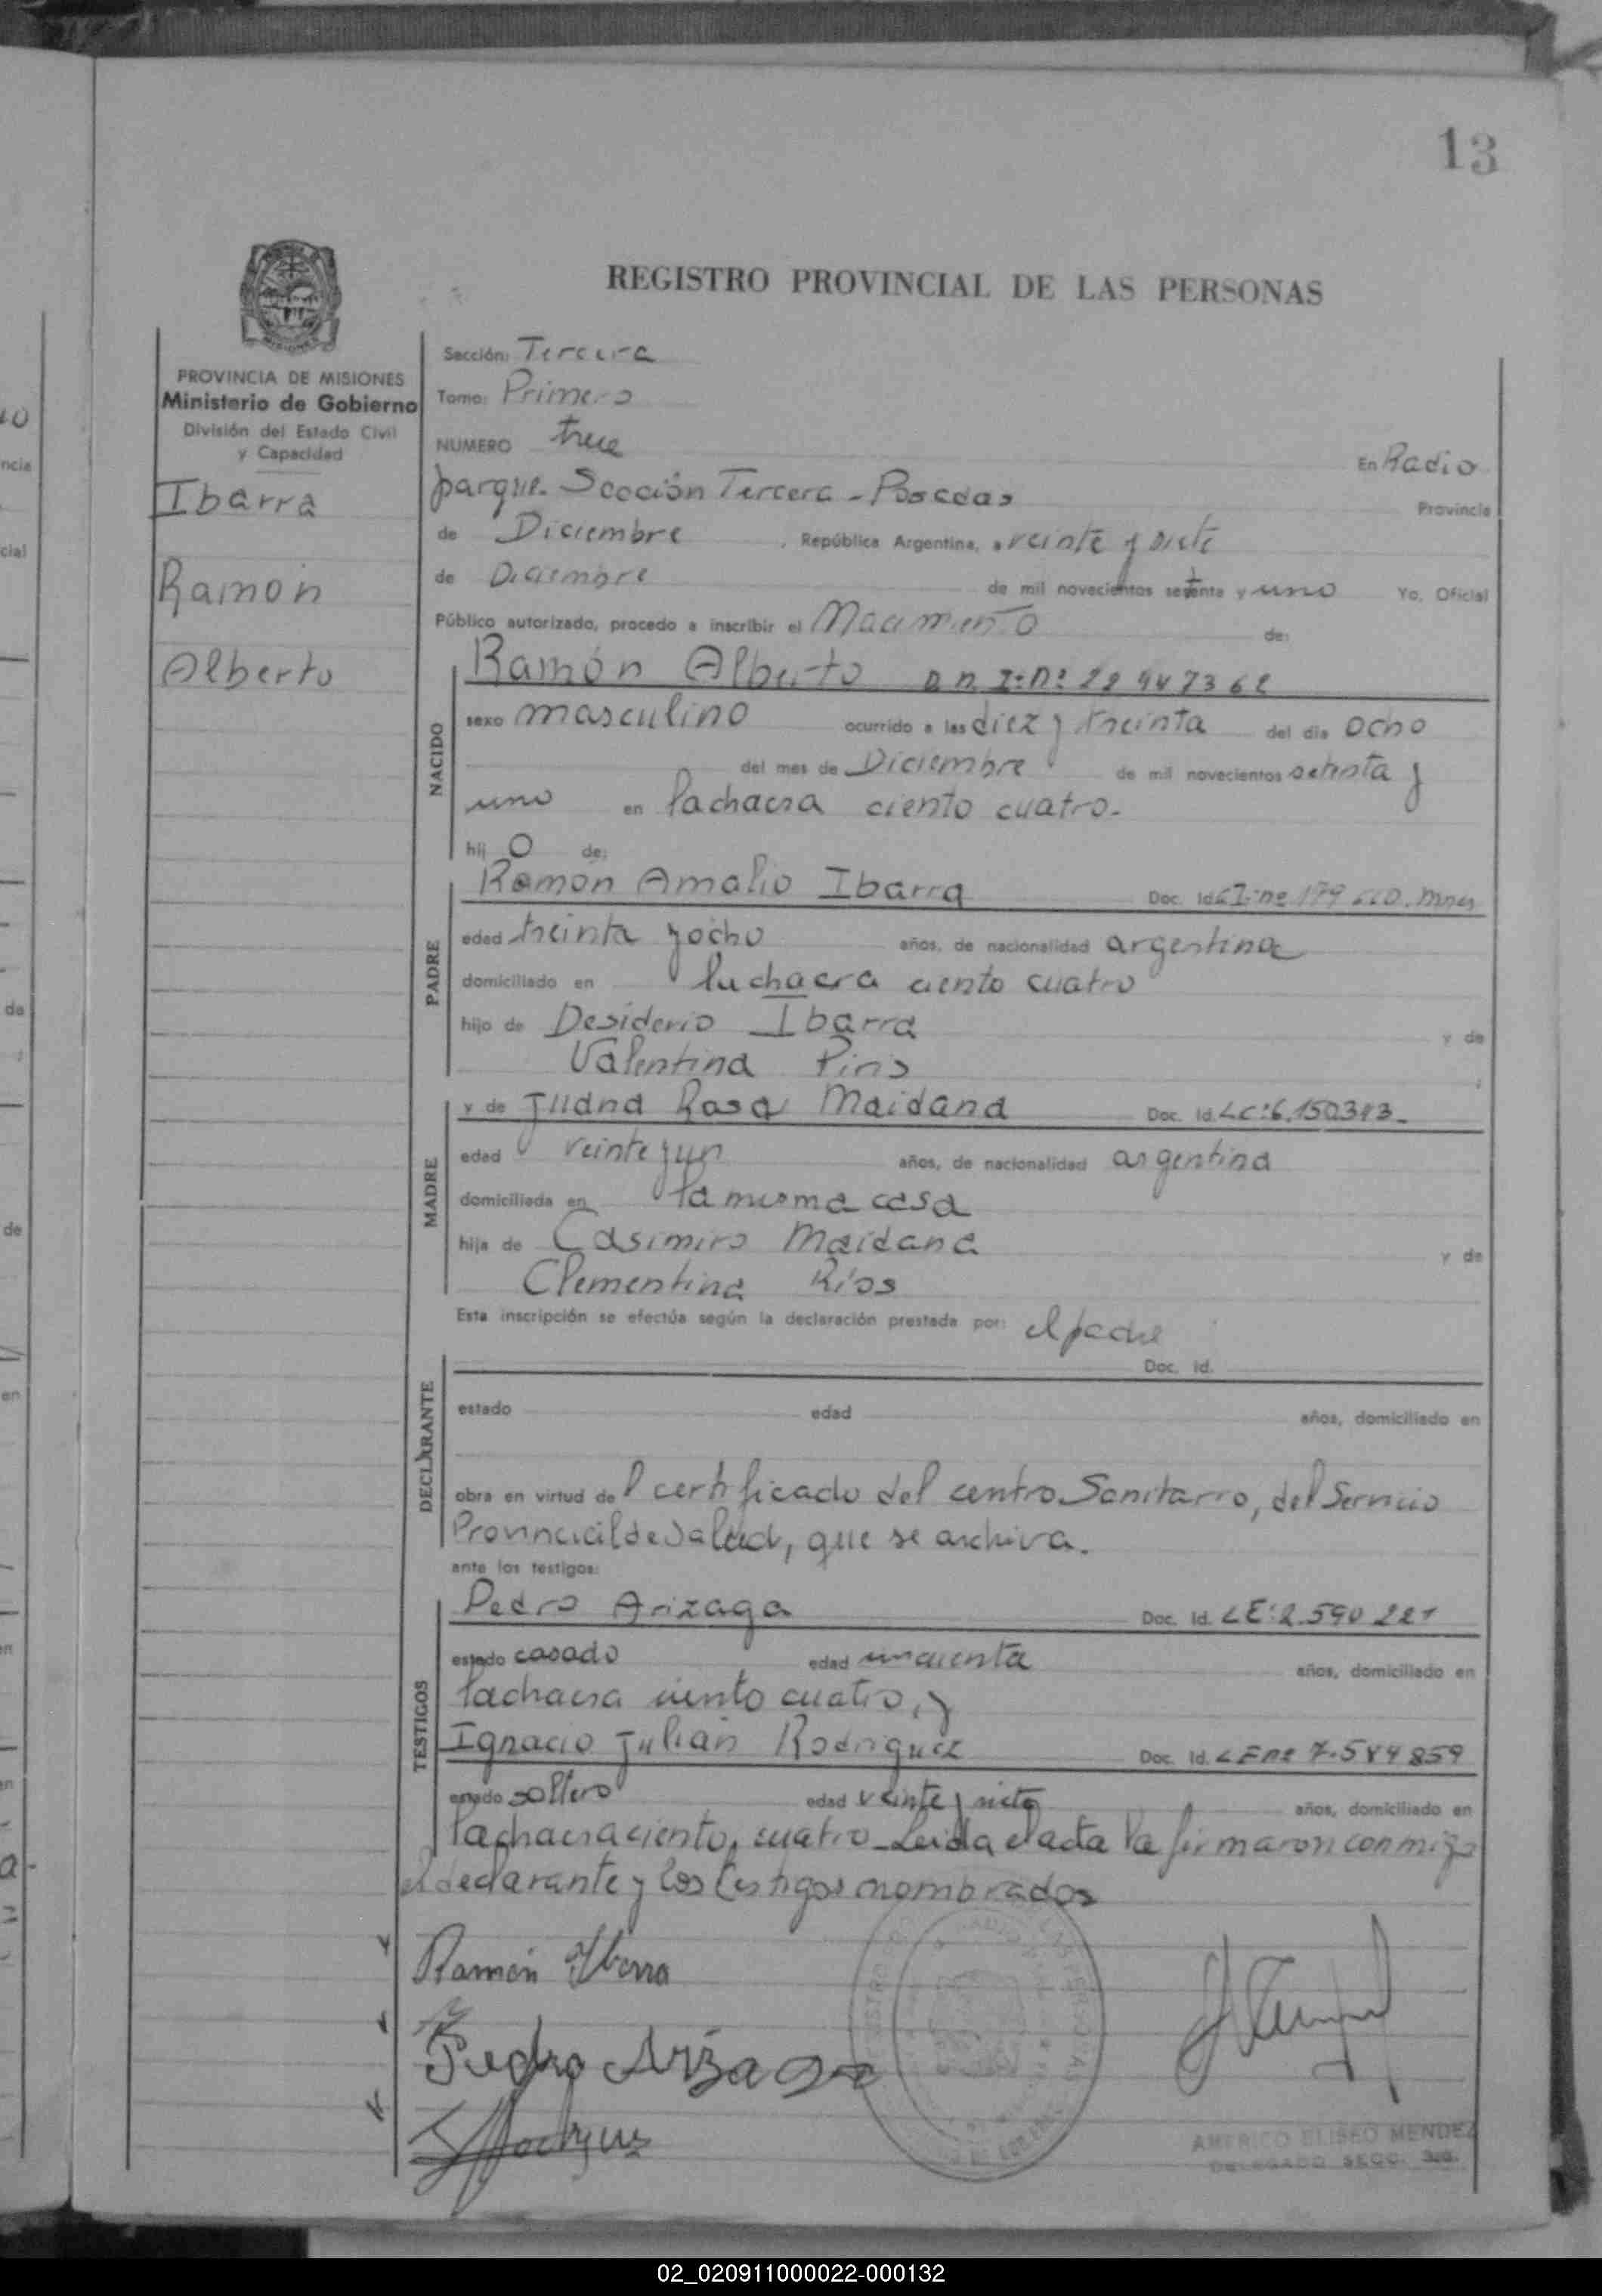 13
REGISTRO PROVINCIAL DE LAS PERSONAS
PROVINCIA DE MISIONES
Ministerio de Gobierno
División del Estado Civil
y Capacidad
Ibarra
Ramón
Alberto
Sección: Tercera
Tomo: Primero
NUMERO trece
En Radio
parque. Sección Tercera - Posadas
Provincia
de Diciembre, República Argentina, a veinte y siete
de Diciembre de mil novecientos setenta y uno Yo, Oficial
Público autorizado, procedo a inscribir el Nacimiento de:
NACIDO
Ramón Alberto D.N.I: Nº
sexo masculino ocurrido a las diez y treinta del día ocho
del mes de Diciembre de mil novecientos setenta y
uno en la chacra ciento cuatro.
hij o de:
PADRE
Ramón Amalio Ibarra Doc. Id. CI: nº
edad treinta y ocho años, de nacionalidad argentina
domiciliado en la chacra ciento cuatro
hijo de Desiderio Ibarra y de
Valentina Piris
MADRE
y de Juana Rosa Maidana Doc. Id. LC: 6.150313.
edad veinte y un años, de nacionalidad argentina
domiciliada en la misma casa
hija de Casimiro Maidana y de
Clementina Ríos
Esta inscripción se efectúa según la declaración prestada por: el padre
DECLARANTE
Doc. Id.
estado edad años, domiciliado en
obra en virtud del certificado del centro Sanitario, del Servicio
Provincial de Salud, que se archiva.
ante los testigos:
TESTIGOS
Pedro Arizaga Doc. Id. LE: 2.590 221
estado casado edad cincuenta años, domiciliado en
la chacra ciento cuatro, y
Ignacio Julián Rodriguez Doc. Id. LE nº 7.584859
estado soltero edad veinte y siete años, domiciliado en
la chacra ciento cuatro - Leida el acta la firmaron conmigo
el declarante y los testigos nombrados
Ramón Ibarra
Pedro Arizaga
AMERICO ELISEO MENDEZ
DELEGADO SECC. 3ra.
02_020911000022-000132